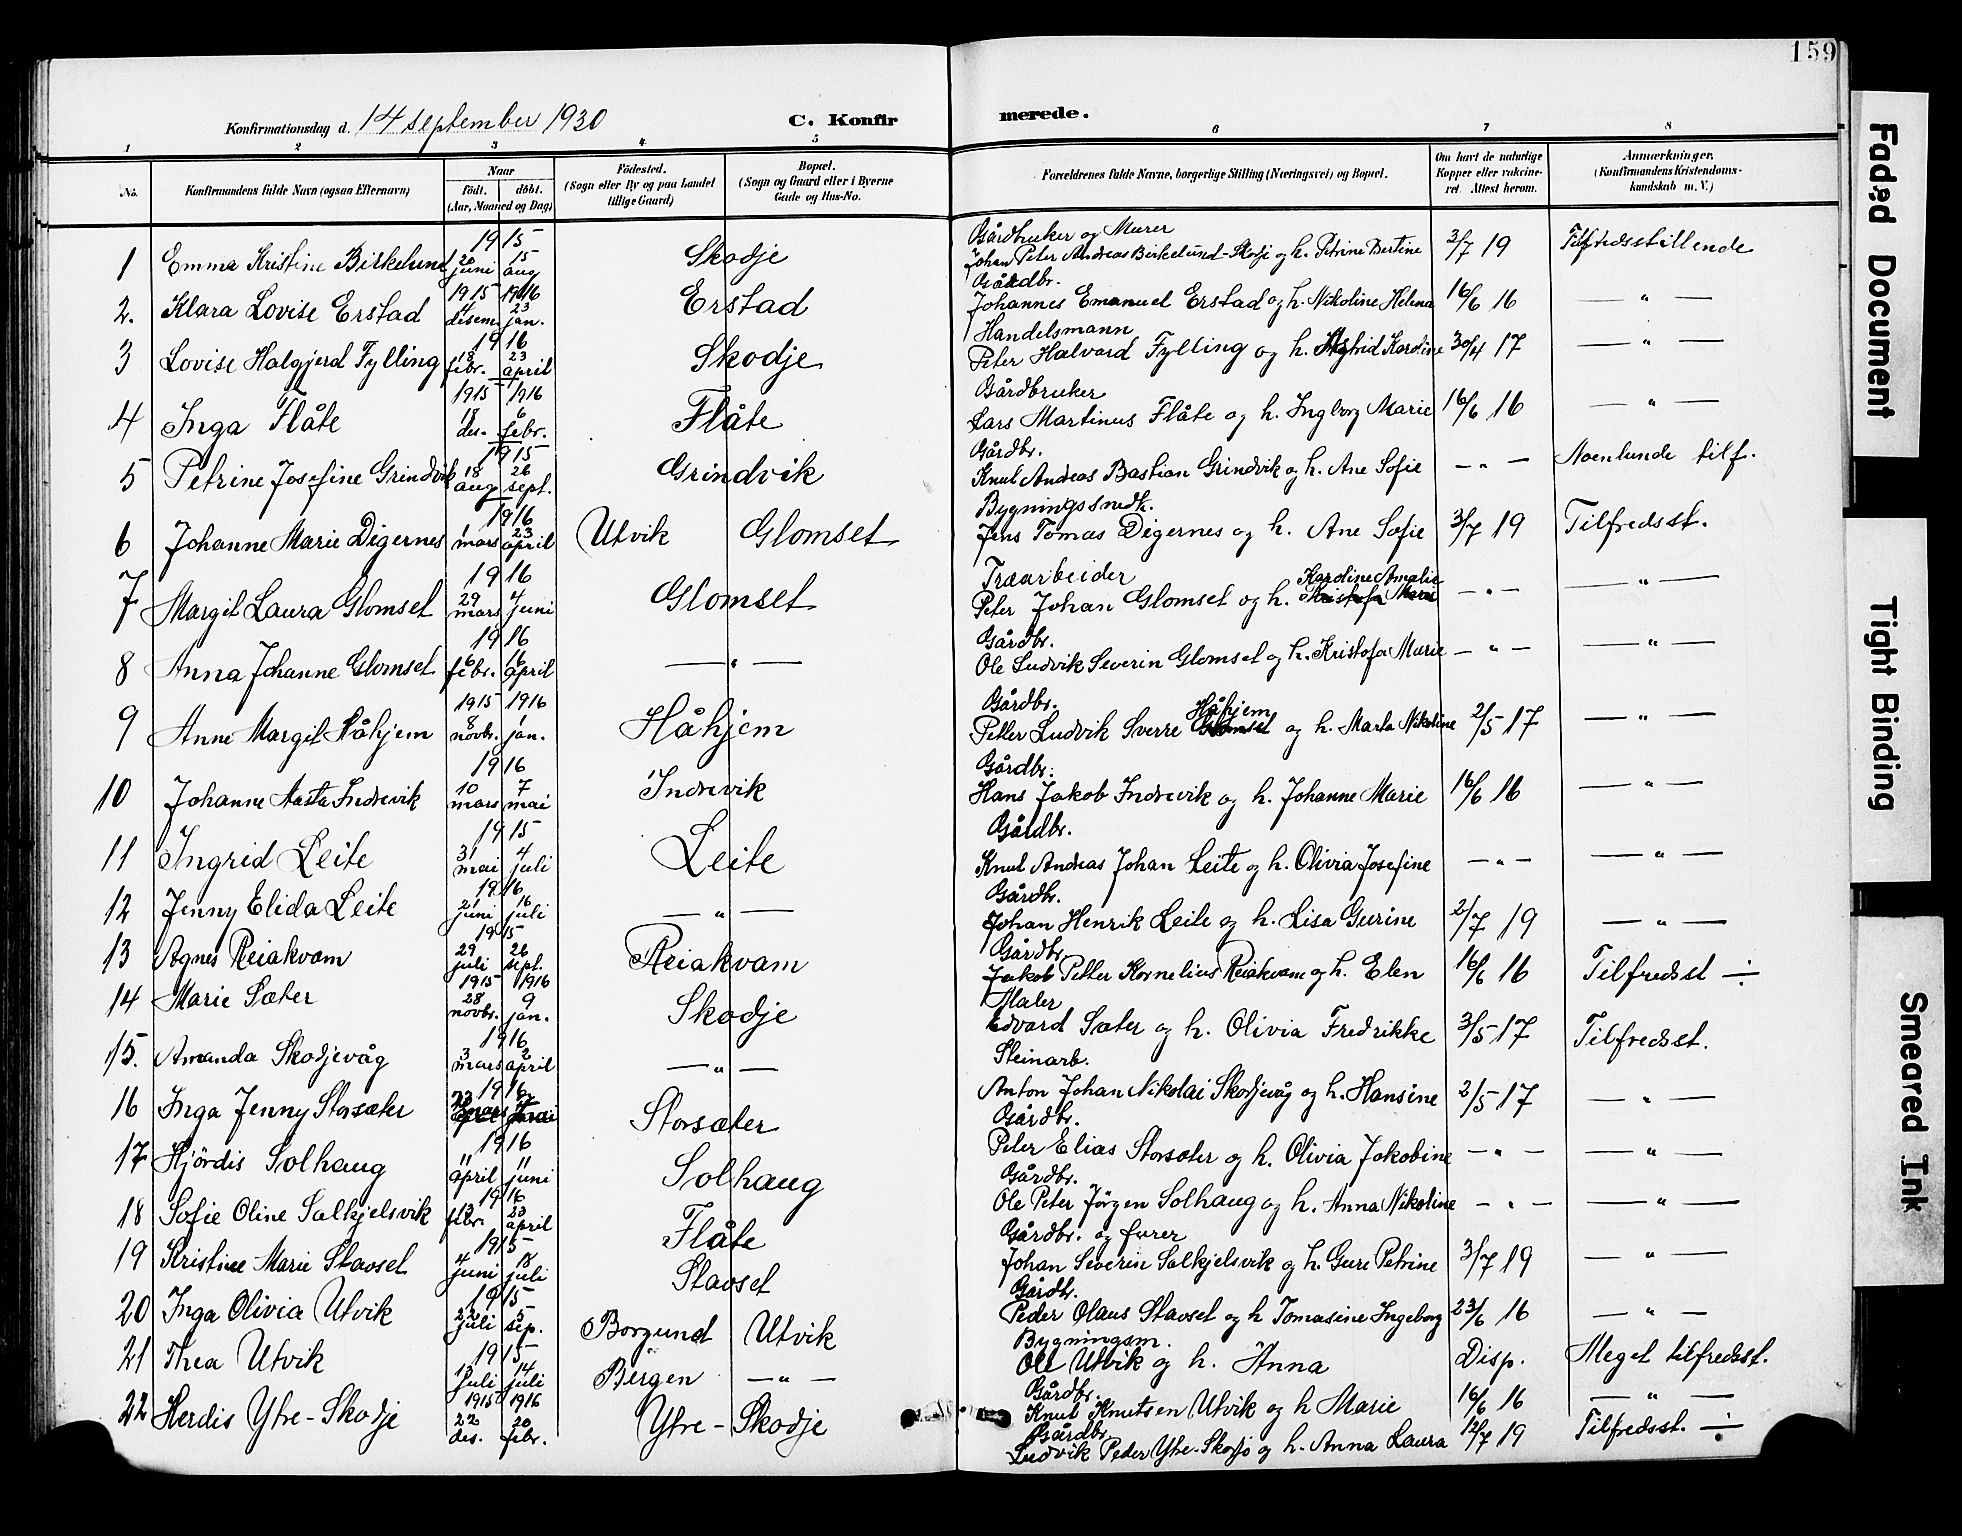 159
Konfirmationsdag d. 14 september 1930 C. Konfirmerede.
1 2 3 4 5 6 7 8
No. Konfirmandens fulde Navn (ogsaa Efternavn) Naar født. døbt. (Aar, Maaned og Dag) Fødested. (Sogn eller By og paa Landet tillige Gaard) Bopæl. (Sogn og Gaard eller i Byerne Gade og Hus-No. Forældrenes fulde Navne, borgerlige Stilling (Næringsvei) og Bopæl. Om havt de naturlige Kopper eller vaccineret. Attest herom. Anmærkninger. (Konfirmandens Kristendomskundskab m. V.)
1 Emma Kristine Birkelund 1915 20 juni 15 aug Skodje Gårdbruker og Murer Johan Peter Andreas Birkelund-Skodje og h. Petrine Bertine 3/7 19 Tilfredsstillende
2. Klara Lovise Erstad 1915 desem. 1916 23 jan. Erstad Gårdbr. Johannes Emanuel Erstad og h. Nikoline Helena 16/6 16 — " —
3 Lovise Halgjerd Fylling 1916 18 febr. 23 april Skodje Handelsmann Peter Halvard Fylling og h. Astrid Karoline 30/4 17 — " —
4 Inga Flåte 1915 18 des. 1916 6 febr. Flåte Gårdbruker Lars Martinus Flåte og h. Ingborg Marie 16/6 16 — " —
5 Petrine Josefine Grindvik 1915 18 aug 26 sept. Grindvik Gårdbr. Knut Andreas Bastian Grindvik og h. Ane Sofie — " — Noenlunde tilf.
6 Johanne Marie Digernes 1916 1 mars 23 april Utvik Glomset Bygningssnedk. Jens Tomas Digernes og h. Ane Sofie 3/7 19 Tilfredsst.
7 Margit Laura Glomset 1916 29 mars 4 juni Glomset Træarbeider Peter Johan Glomset og h. Karoline Amalie Kristofa Marie — " — — " —
8 Anna Johanne Glomset 1916 6 febr. 16 april — " — Gårdbr. Ole Ludvik Severin Glomset og h. Kristofa Marie — " — — " —
9 Anne Margit Håhjem 1915 8 novbr. 1916 1 jan. Håhjem Gårdbr. Petter Ludvik Sverre Håhjem Glomset og h. Marta Nikoline 2/5 17 — " —
10 Johanne Aasta Indrevik 1916 10 mars 7 mai Indrevik Gårdbr. Hans Jakob Indrevik og h. Johanne Marie 16/6 16 — " —
11 Ingrid Leite 1915 31 mai 4 juli Leite Gårdbr. Knut Andreas Johan Leite og h. Olivia Josefine — " — — " —
12 Jenny Elida Leite 1916 21 juni 16 juli — " — Gårdbr. Johan Henrik Leite og h. Lisa Gurine 2/7 19 — " —
13 Agnes Reiakvam 1915 29 juli 26 sept. Reiakvam Gårdbr Jakob Petter Kornelius Reiakvam og h. Elen 16/6 16 Tilfredsst ÷
14 Marie Sæter 1915 28 novbr. 1916 9 jan. Skodje Maler Edvard Sæter og h. Olivia Fredrikke 3/5 17 Tilfredsst.
15. Amanda Skodjevåg 1916 3 mars 2 april — " — Steinarb. Anton Johan Nikolai Skodjevåg og h. Hansine 2/5 17 — " —
16 Inga Jenny Storsæter 1916 23 mars Storsæter Gårdbr. Peter Elias Storsæter og h. Olivia Jakobine — " — — " —
17 Hjördis Solhaug 1916 11 april 11 juni Solhaug Gårdbr. Ole Peter Jørgen Solhaug og h. Anna Nikoline — " — — " —
18 Sofie Oline Salkjelsvik 1916 13 febr. 23 april Flåte Gårdbr. og furer Johan Severin Salkjelsvik og h. Gure Petrine 3/7 19 — " —
19 Kristine Marie Stavset 1915 4 juni 18 juli Stavset Gårdbr. Peder Olaus Stavset og h Tomasine Ingeborg 23/6 16 — " —
20 Inga Olivia Utvik 1915 22 juli 5 sep. Borgund Utvik Bygningsm. Ole Utvik og h. Anna Disp. Meget tilfredsst.
21 Thea Utvik 1915 13 juli 14 juli Bergen — " — Gårdbr. Knut Knutsen Utvik og h Marie 16/6 16 — " —
22 Herdis Ytre-Skodje 1915 22 des. 1916 20 febr. Ytre-Skodje Gårdbr. Ludvik Peder Ytre-Skodje og h. Anna Laura 12/7 19 Tilfredsst. ÷
Faded Document
Tight Binding
Smeared Ink